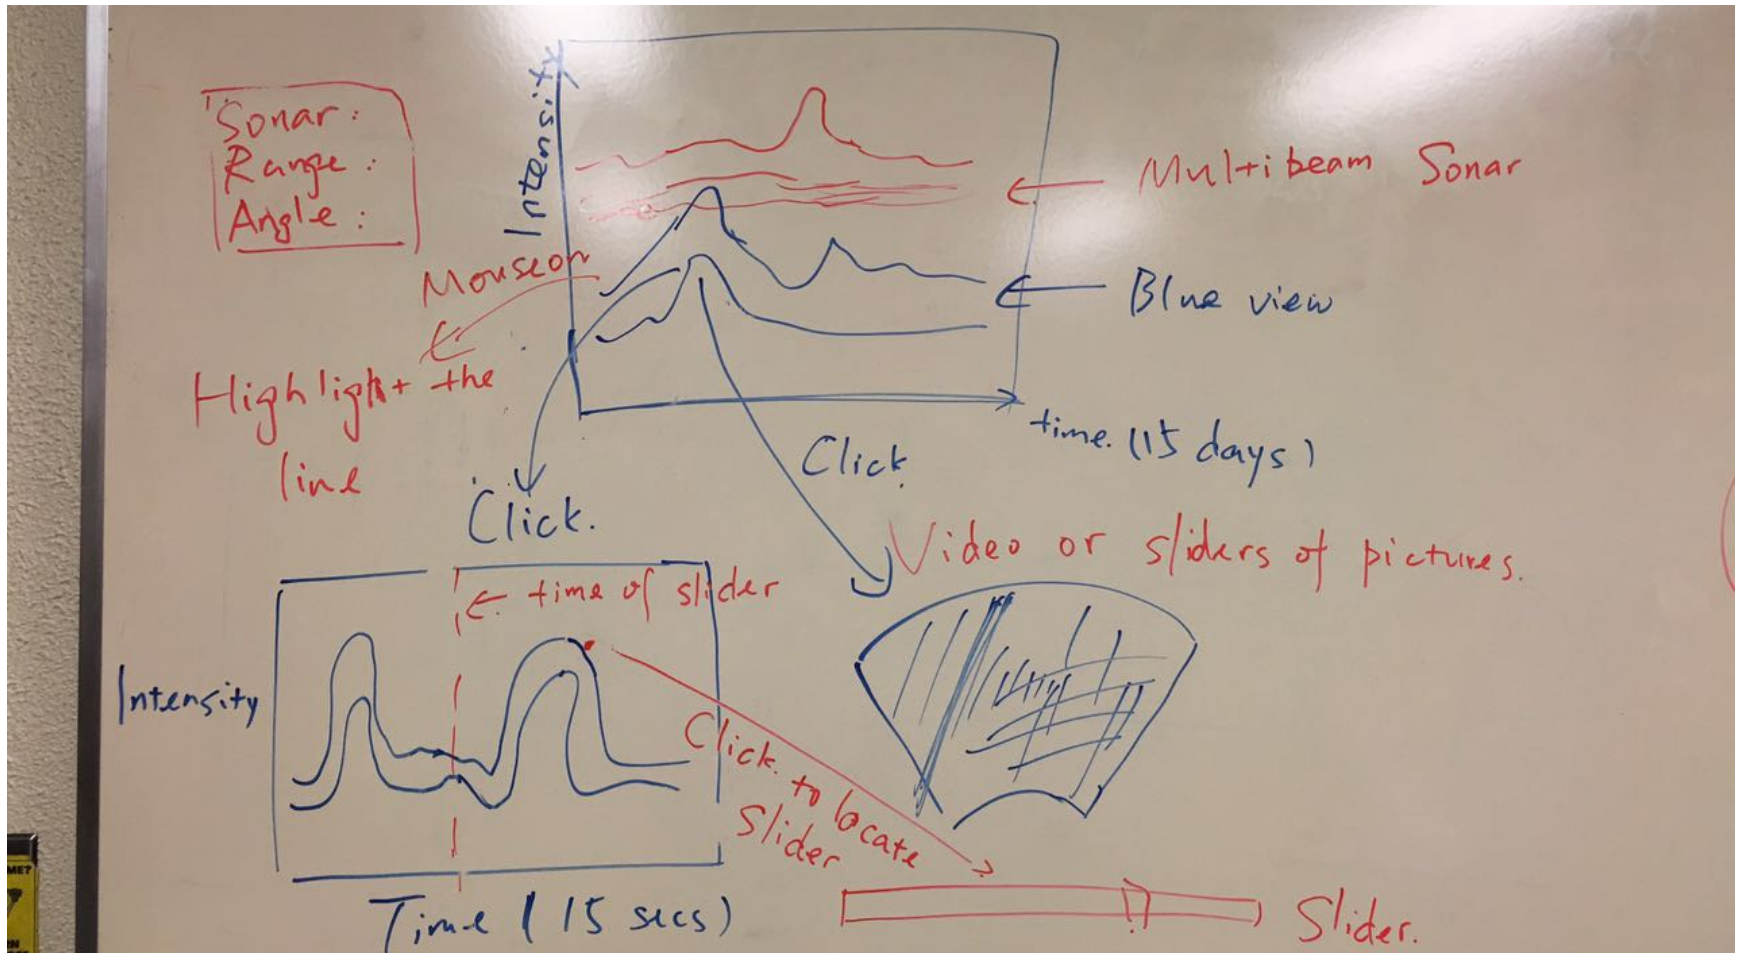 Intensity
Sonar:
Range:
Angle:
Multibeam Sonar
Mouse on
Blue view
Highlight the
line
time. (15 days)
Click.
Click.
Video or sliders of pictures.
← time of slider
Intensity
Click to locate
Slider
Time (15 secs)
Slider.